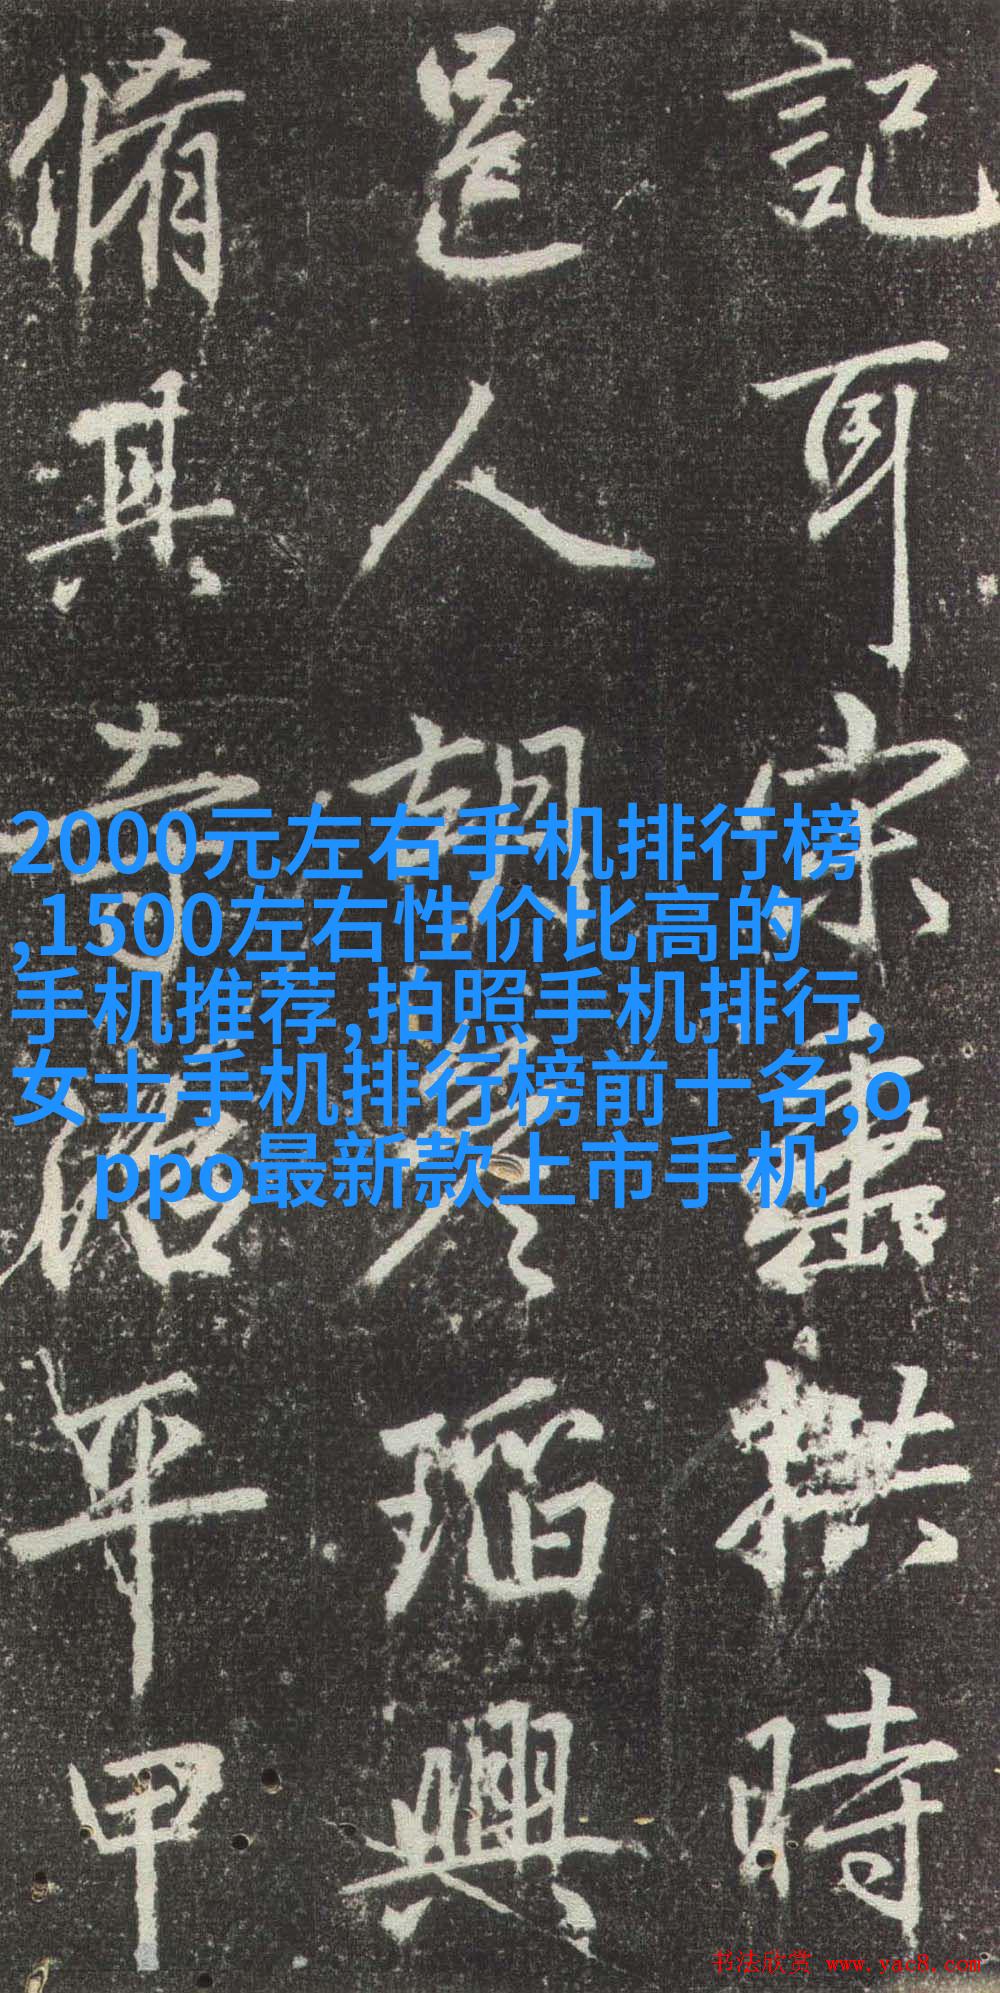 記耳宋拱時
邑人彦瑫興
脩其寺治平甲
2000元左右手机排行榜
,1500左右性价比高的
手机推荐,拍照手机排行,
女士手机排行榜前十名,o
ppo最新款上市手机
书法欣赏 www.yac8.com